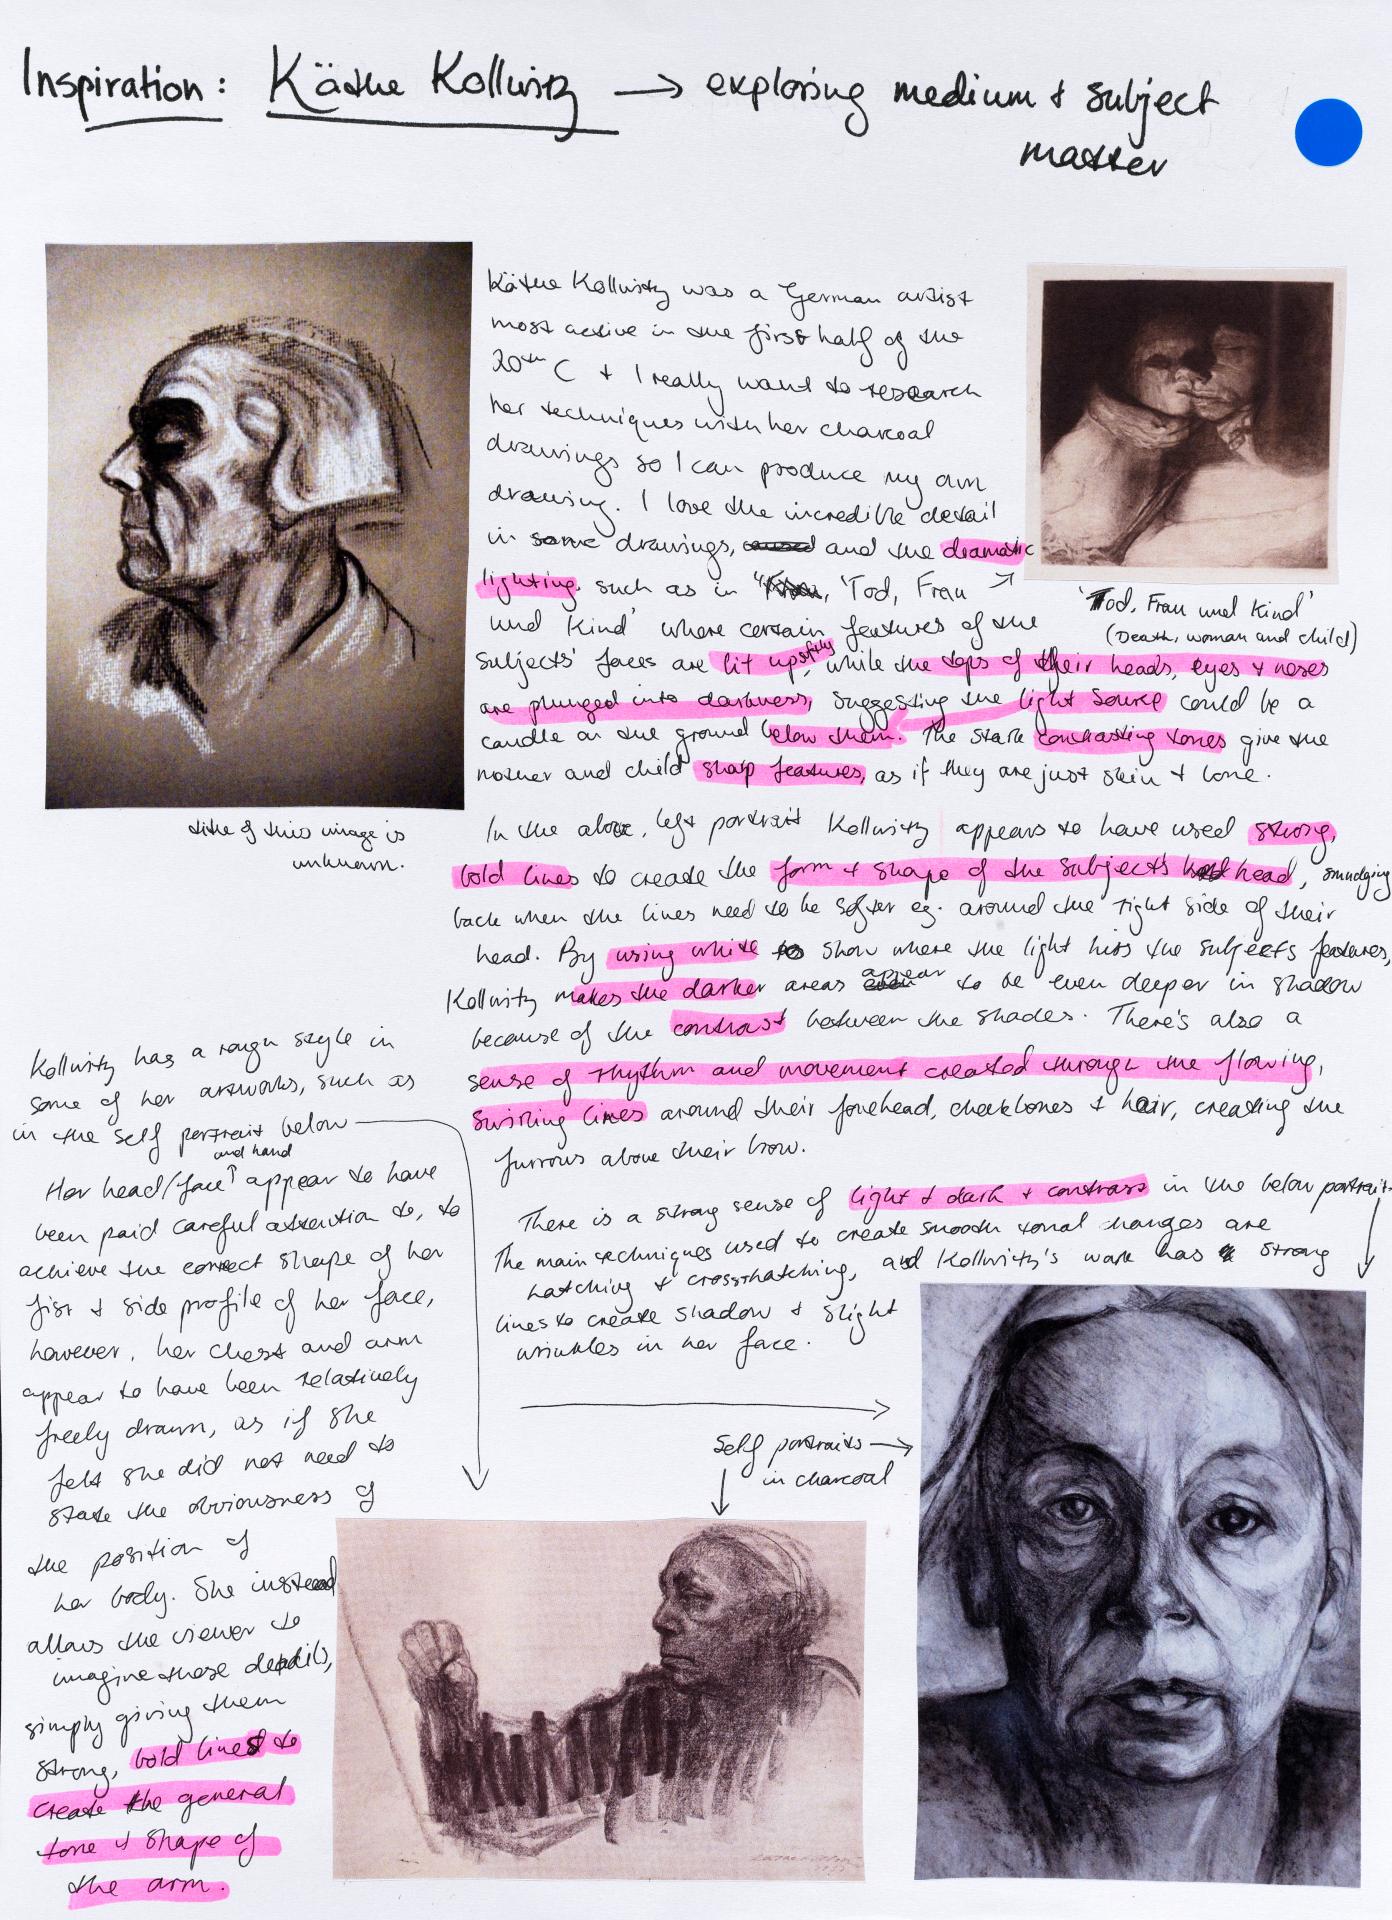 Inspiration: Käthe Kollwitz → exploring medium & subject
matter
Käthe Kollwitz was a German artist
most active in the first half of the
20th C & I really want to research
her techniques with her charcoal
drawings so I can produce my own
drawing. I love the incredible detail
in some drawings, and the dramatic
lighting, such as in 'Tod, Frau
und Kind' where certain features of the
subjects' faces are lit up softly, while the tops of their heads, eyes & noses
are plunged into darkness, suggesting the light source could be a
candle on the ground below them. The stark contrasting tones give the
mother and child sharp features, as if they are just skin & bone.
'Tod, Frau und Kind'
(Death, woman and child)
title of this image is
unknown.
In the above, left portrait Kollwitz appears to have used strong,
bold lines to create the form & shape of the subject's head, smudging
back when the lines need to be softer eg. around the right side of their
head. By using white to show where the light hits the subjects features,
Kollwitz makes the darker areas appear to be even deeper in shadow
because of the contrast between the shades. There's also a
sense of rhythm and movement created through the flowing,
swirling lines around their forehead, cheekbones & hair, creating the
furrows above their brow.
There is a strong sense of light & dark & contrast in the below portrait.
The main techniques used to create smooth tonal changes are
hatching & crosshatching, and Kollwitz's work has strong
lines to create shadow & slight
wrinkles in her face.
Kollwitz has a rough style in
some of her artworks, such as
in the self portrait below
Her head/face and hand appear to have
been paid careful attention to, to
achieve the correct shape of her
fist & side profile of her face,
however, her chest and arm
appear to have been relatively
freely drawn, as if she
felt she did not need to
state the obviousness of
the position of
her body. She instead
allows the viewer to
imagine those details,
simply giving them
strong, bold lines to
create the general
tone & shape of
the arm.
Self portraits →
in charcoal